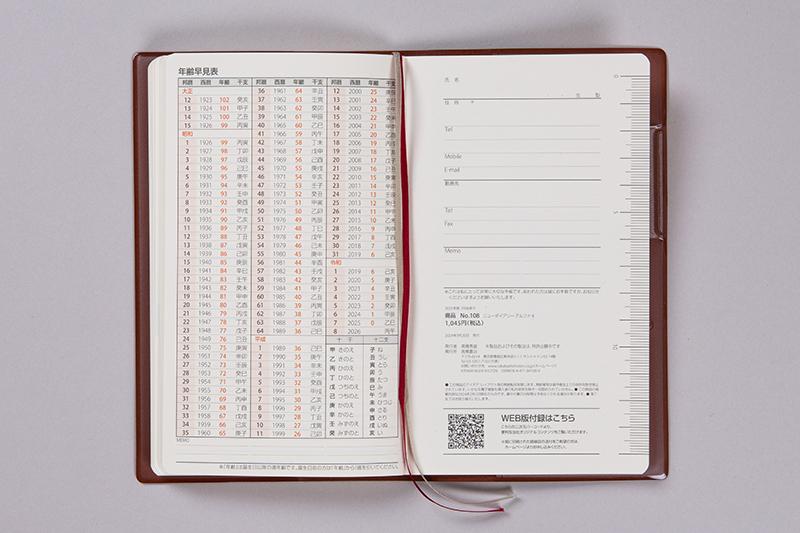 年齢早見表
邦暦 西暦 年齢 干支
大正
12 1923 102 癸亥
13 1924 101 甲子
14 1925 100 乙丑
15 1926 99 丙寅
昭和
1 1926 99 丙寅
2 1927 98 丁卯
3 1928 97 戊辰
4 1929 96 己巳
5 1930 95 庚午
6 1931 94 辛未
7 1932 93 壬申
8 1933 92 癸酉
9 1934 91 甲戌
10 1935 90 乙亥
11 1936 89 丙子
12 1937 88 丁丑
13 1938 87 戊寅
14 1939 86 己卯
15 1940 85 庚辰
16 1941 84 辛巳
17 1942 83 壬午
18 1943 82 癸未
19 1944 81 甲申
20 1945 80 乙酉
21 1946 79 丙戌
22 1947 78 丁亥
23 1948 77 戊子
24 1949 76 己丑
25 1950 75 庚寅
26 1951 74 辛卯
27 1952 73 壬辰
28 1953 72 癸巳
29 1954 71 甲午
30 1955 70 乙未
31 1956 69 丙申
32 1957 68 丁酉
33 1958 67 戊戌
34 1959 66 己亥
35 1960 65 庚子
邦暦 西暦 年齢 干支
36 1961 64 辛丑
37 1962 63 壬寅
38 1963 62 癸卯
39 1964 61 甲辰
40 1965 60 乙巳
41 1966 59 丙午
42 1967 58 丁未
43 1968 57 戊申
44 1969 56 己酉
45 1970 55 庚戌
46 1971 54 辛亥
47 1972 53 壬子
48 1973 52 癸丑
49 1974 51 甲寅
50 1975 50 乙卯
51 1976 49 丙辰
52 1977 48 丁巳
53 1978 47 戊午
54 1979 46 己未
55 1980 45 庚申
56 1981 44 辛酉
57 1982 43 壬戌
58 1983 42 癸亥
59 1984 41 甲子
60 1985 40 乙丑
61 1986 39 丙寅
62 1987 38 丁卯
63 1988 37 戊辰
64 1989 36 己巳
平成
1 1989 36 己巳
2 1990 35 庚午
3 1991 34 辛未
4 1992 33 壬申
5 1993 32 癸酉
6 1994 31 甲戌
7 1995 30 乙亥
8 1996 29 丙子
9 1997 28 丁丑
10 1998 27 戊寅
11 1999 26 己卯
邦暦 西暦 年齢 干支
12 2000 25 庚辰
13 2001 24 辛巳
14 2002 23 壬午
15 2003 22 癸未
16 2004 21 甲申
17 2005 20 乙酉
18 2006 19 丙戌
19 2007 18 丁亥
20 2008 17 戊子
21 2009 16 己丑
22 2010 15 庚寅
23 2011 14 辛卯
24 2012 13 壬辰
25 2013 12 癸巳
26 2014 11 甲午
27 2015 10 乙未
28 2016 9 丙申
29 2017 8 丁酉
30 2018 7 戊戌
31 2019 6 己亥
令和
1 2019 6 己亥
2 2020 5 庚子
3 2021 4 辛丑
4 2022 3 壬寅
5 2023 2 癸卯
6 2024 1 甲辰
7 2025 0 乙巳
8 2026 丙午
十干 十二支
甲 きのえ 子 ね
乙 きのと 丑 うし
丙 ひのえ 寅 とら
丁 ひのと 卯 う
戊 つちのえ 辰 たつ
己 つちのと 巳 み
庚 かのえ 午 うま
辛 かのと 未 ひつじ
壬 みずのえ 申 さる
癸 みずのと 酉 とり
戌 いぬ
亥 い
MEMO
※「年齢」は誕生日以降の満年齢です。誕生日前の方は「年齢」から1歳を引いてください。
氏名
生 型
住所 〒
Tel
Mobile
E-mail
勤務先
Tel
Fax
Memo
0
5
10
商品 No.108 ニューダイアリー アルファ 8
1,045円(税込)
WEB版付録はこちら
こちらの二次元バーコードより、
便利な当社オリジナルコンテンツをご覧いただけます。
ホームページよりお申し込みください。